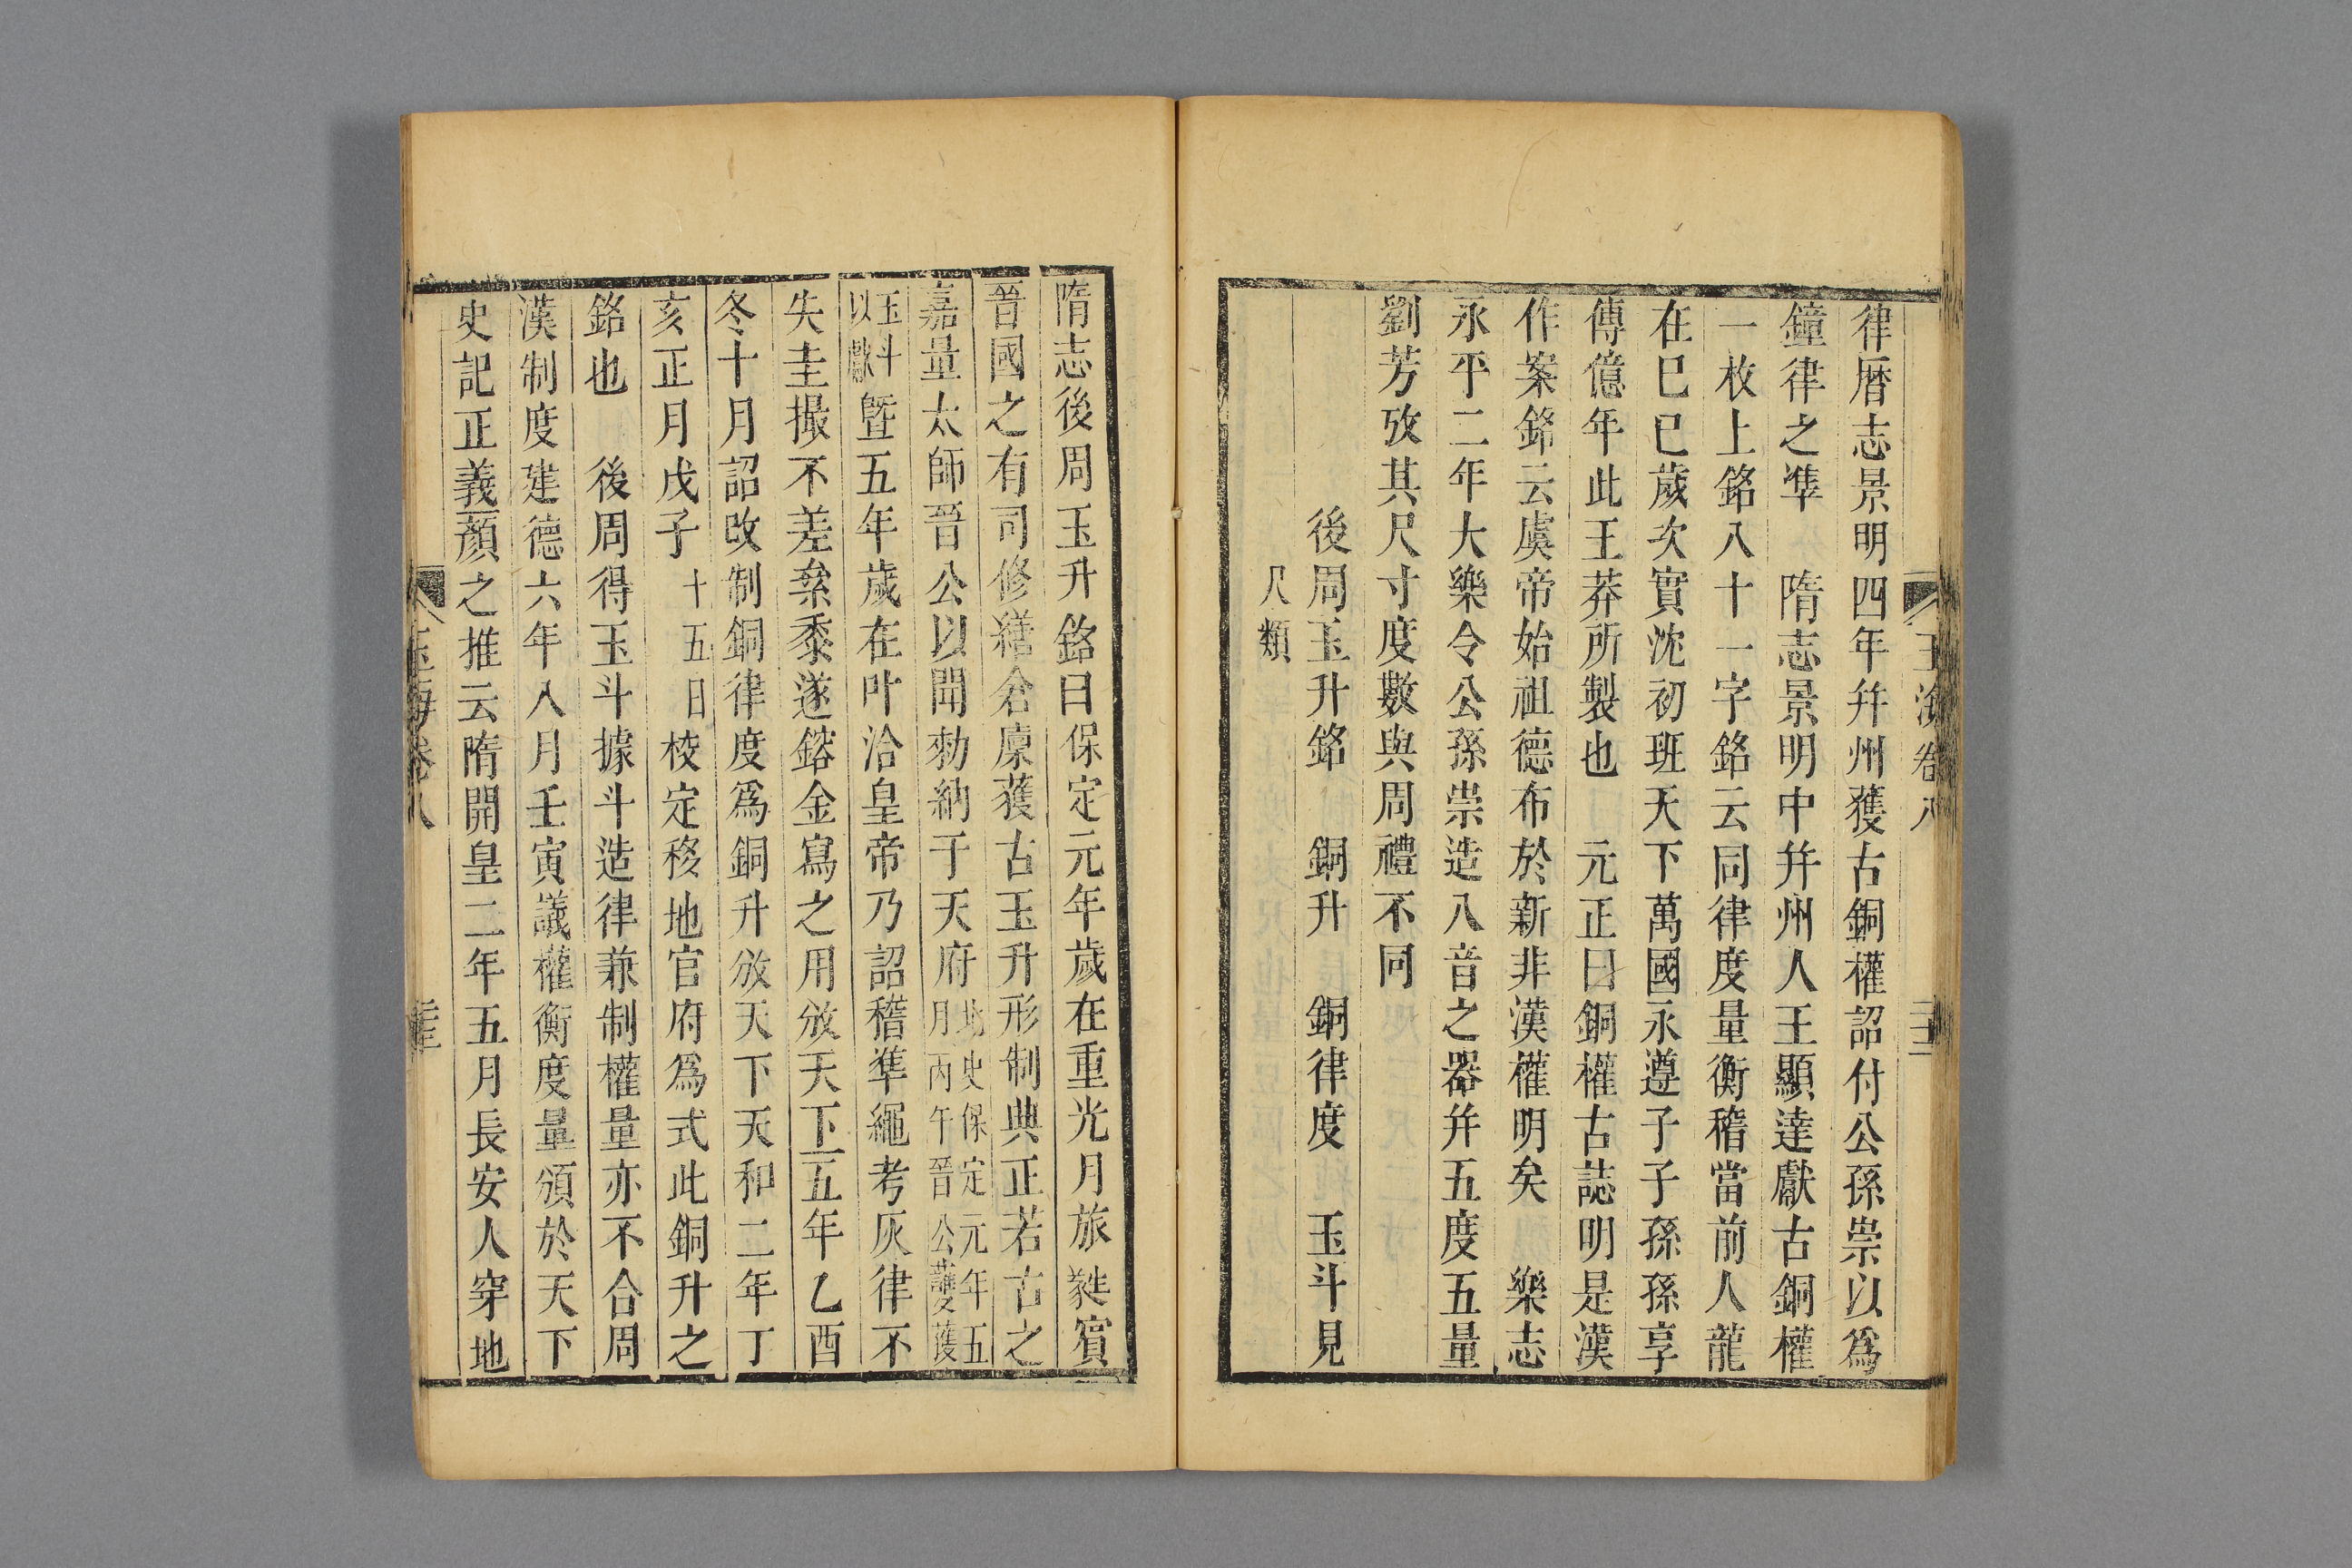 玉海卷八
律暦志景明四年幷州獲古銅權詔付公孫崇以爲
鐘律之準　隋志景明中幷州人王顯達獻古銅權
一枚上銘八十一字銘云同律度量衡稽當前人龍
在巳巳歲次實沈初班天下萬國永遵子子孫孫享
傳億年此王莽所製也　元正曰銅權古誌明是漢
作案銘云虞帝始祖德布於新非漢權明矣　樂志
永平二年大樂令公孫崇造八音之器幷五度五量
劉芳攷其尺寸度數與周禮不同
後周玉升銘　銅升　銅律度　玉斗見
尺類
隋志後周玉升銘曰保定元年歲在重光月旅蕤賓
晉國之有司修繕倉廩獲古玉升形制典正若古之
嘉量太師晉公以聞勑納于天府北史保定元年五
月丙午晉公護獲
玉斗
以獻暨五年歲在叶洽皇帝乃詔稽準繩考灰律不
失圭撮不差絫黍遂鎔金寫之用頒天下五年乙酉
冬十月詔改制銅律度爲銅升頒天下天和二年丁
亥正月戊子十五日校定移地官府爲式此銅升之
銘也　後周得玉斗據斗造律兼制權量亦不合周
漢制度建德六年八月壬寅議權衡度量頒於天下
史記正義顏之推云隋開皇二年五月長安人穿地
玉海卷八